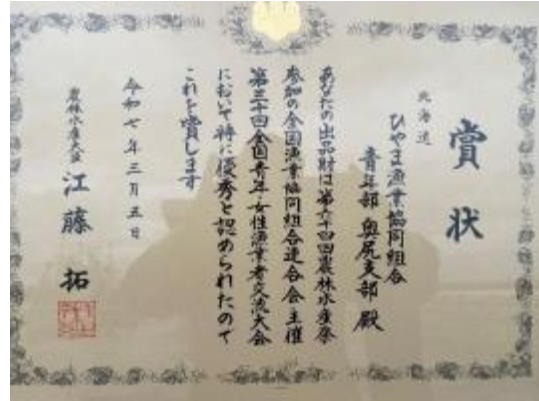 賞状
北海道
ひやま漁業協同組合
青年部 奥尻支部 殿
あなたの出品財は第六十四回農林水産祭
参加の全国漁業協同組合連合会主催
第三十回全国青年・女性漁業者交流大会
において特に優秀と認められたので
これを賞します
令和七年三月五日
農林水産大臣 江藤 拓